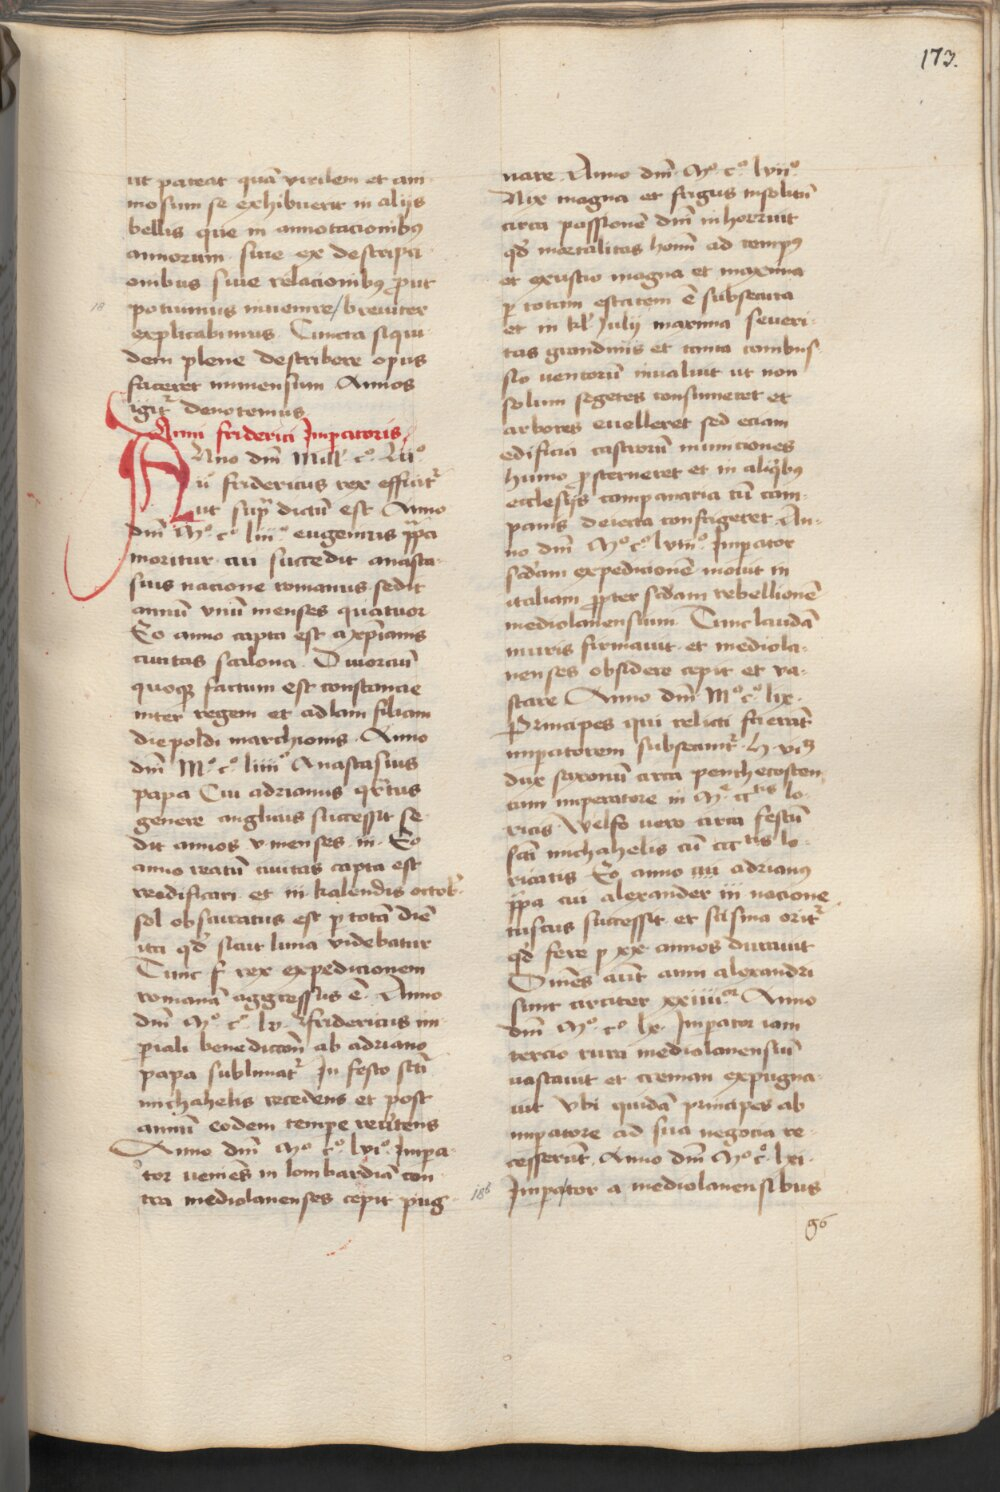 173.
ut pateat quā virilem et ani
mosum se exhibuerit in alijs
bellis que in annotacionibꝰ
annorum siue ex descripti
onibus siue relacionibꝰ ꝓut
potuimus inuenire / breuiter
explicabimus Cuncta siqui
dem plene describere opus
faceret inmensum Annos
igitᷣ denotemus
Anni friderici Impatoris
ANno dm̄ Mill̄ cº Liiº
ii fridericus rex efficitᷣ
ut supᷓ dictū est Anno
dm̄ Mº cº liiiº eugenius pp̄a
moritur cui succedit anasta
sius nacione romanus sedit
annū vnū menses quatuor
Eo anno capta est a xp̄ianis
ciuitas scalona Diuorciū
quoqꝫ factum est constancie
inter regem et adlam filiam
diepoldi marchionis Anno
dm̄ Mº cº liiiiº Anastasius
papa Cui adrianus qᷓrtus
genere anglicus successit se
dit annos v menses iii Eo
anno reatū ciuitas capta est
reedificari et iii kalendis octobᷣ
sol obscuratus est ꝑ totā diē
ita qd̓ sicut luna videbatur
Tunc f rex expedicionem
romanā aggressus ē Anno
dm̄ Mº cº lv fridericus im
ꝑiali benediccōn̄ ab adriano
papa sublimatᷣ In festo sc̄ti
michahelis recedens et post
annū eodem tempe reūtens
Anno dm̄ Mº cº lviº Impa
tor veniēs in lombardiā con
tra mediolanenses cepit pug
nare Anno dm̄ Mº cº lviiº
Nix magna et frigus insolitū
circa passionē dm̄ inhorruit
qd̓ mortalitas hoīm ad tempꝰ
et exustio magna et maxima
ꝑ totam estatem ē subsecuta
et in kl̓ Iulij maxima seueri
tas grandinis et tanta combus
sio uentorū inualuit ut non
solum segetes consumeret et
arbores euelleret sed eciam
edificia castrorū municiones
humo ꝓsterneret et in aliqͥbꝰ
ecclesijs campanaria cū cam
panis deiecta confrigeret An
no dm̄ Mº cº lviiiº Imperator
scd̄am expedicionē mouit in
italiam ꝓpter scd̄am rebellionē
mediolanensium Tunc laudā
muris firmauit et mediola
nenses obsidere cepit et va
stare Anno dm̄ Mº cº lix
Principes qui relicti fuerāt
imperatorem subsecuntᷣ h vi9
dux saxonū circa penthecosten
cum imperatore in Mº cctis lo
ricis Welfo uero circa festū
sc̄ti michahelis cū ccctis lo
ricatis Eo anno iiii adrianꝰ
pp̄a cui alexander iii nacione
tuscus successit et scisma oritᷣ
qd̓ fere ꝑ xx annos durauit
Omēs aūt anni alexandri
sunt circiter xxiiiior Anno
dm̄ Mº cº lx Impator iam
tercio rura mediolanensiū
uastauit et cremam expugna
uit Vbi quidā principes ab
impatore ad sua negocia re
cesserūt Anno dm̄ Mº cº lxi
Impator a mediolanensibus
186
96